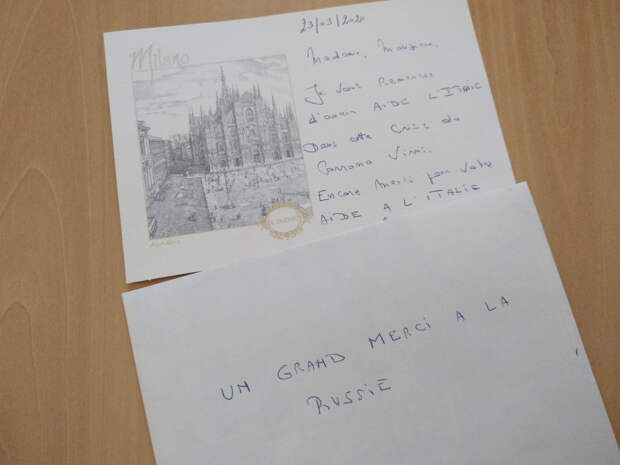 Milano
23/03/2020
Madame, Monsieur,
Je vous remercie
d'avoir AIDE L'ITALIE
Dans cette Crise du
Corrona Virus.
Encore Merci pour votre
AIDE A L'ITALIE
UN GRAND MERCI A LA
RUSSIE